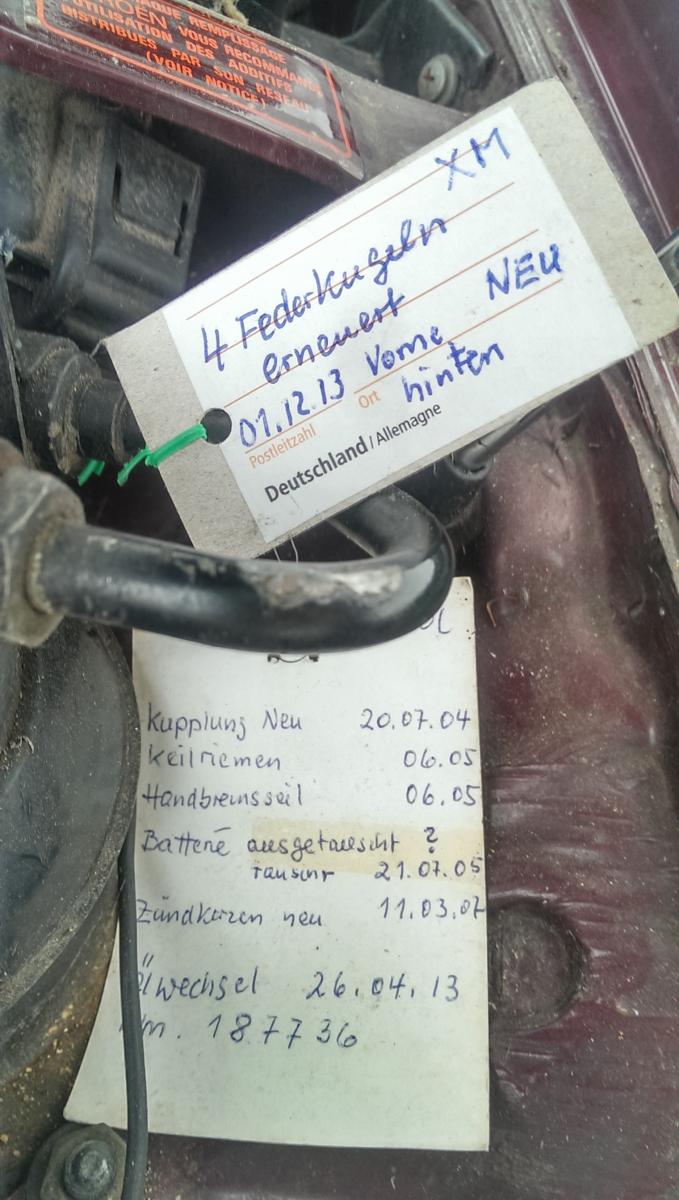 REMPLISSAGE
VOUS RECOMMANDE
UTILISATION DES ADDITIFS
DISTRIBUES PAR SON RESEAU
(VOIR NOTICE)
XM
4 Federkugeln
erneuert NEU
01.12.13 Vorne
hinten
Postleitzahl Ort
Deutschland / Allemagne
Kupplung Neu 20.07.04
Keilriemen 06.05
Handbremsseil 06.05
Batterie ausgetauscht ?
Tausch 21.07.05
Zündkerzen neu 11.03.07
Ölwechsel 26.04.13
187736